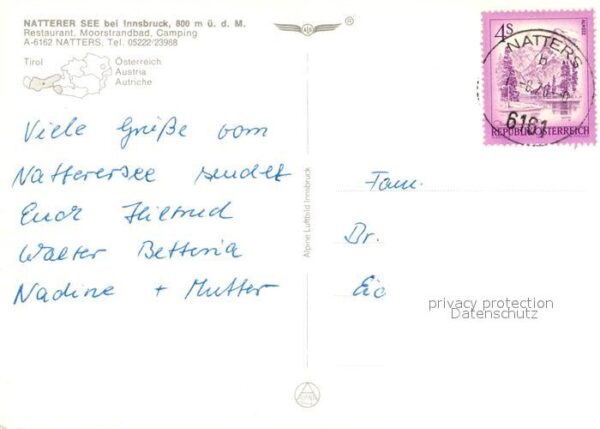 NATTERER SEE bei Innsbruck, 800 m ü. d. M.
Restaurant, Moorstrandbad, Camping
A-6162 NATTERS. Tel. 05222/23988
Tirol
Österreich
Austria
Autriche
4S
NATTERS
b
6161
REPUBLIK ÖSTERREICH
Viele Grüße vom
Natterersee sendet
Euch Hiltrud
Walter Bettina
Nadine + Mutter
Alpine Luftbild Innsbruck
Fam.
Dr.
privacy protection
Datenschutz